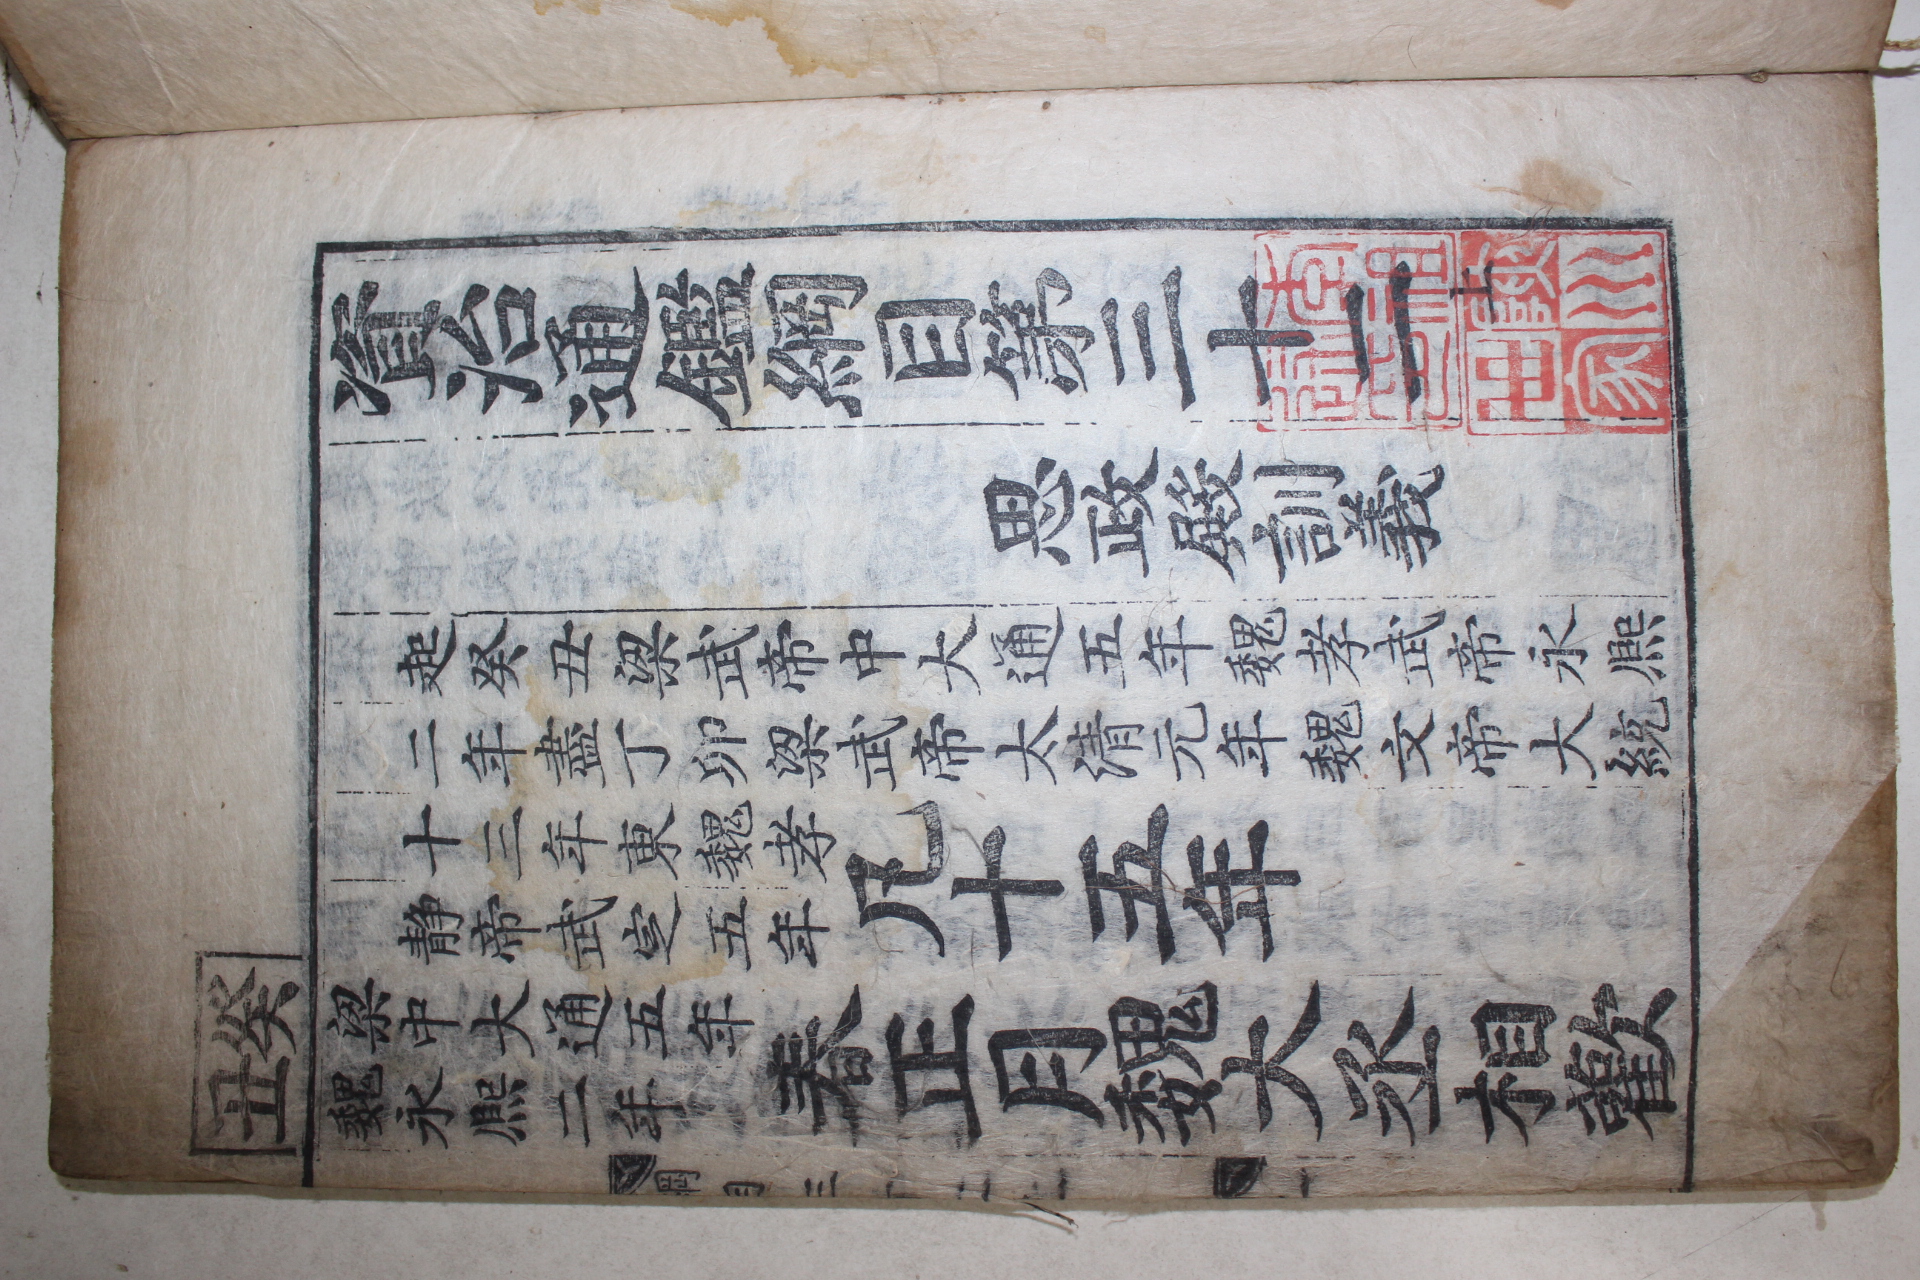 資治通鑑綱目第三十二上
思政殿訓義
起癸丑梁武帝中大通五年魏孝武帝永熙
二年盡丁卯梁武帝太清元年魏文帝大統
十三年東魏孝
静帝武定五年
凡十五年
癸丑
梁中大通五年
魏永熙二年
春正月魏大丞相歡
綱目三十二上
一
李祖
陜川世家